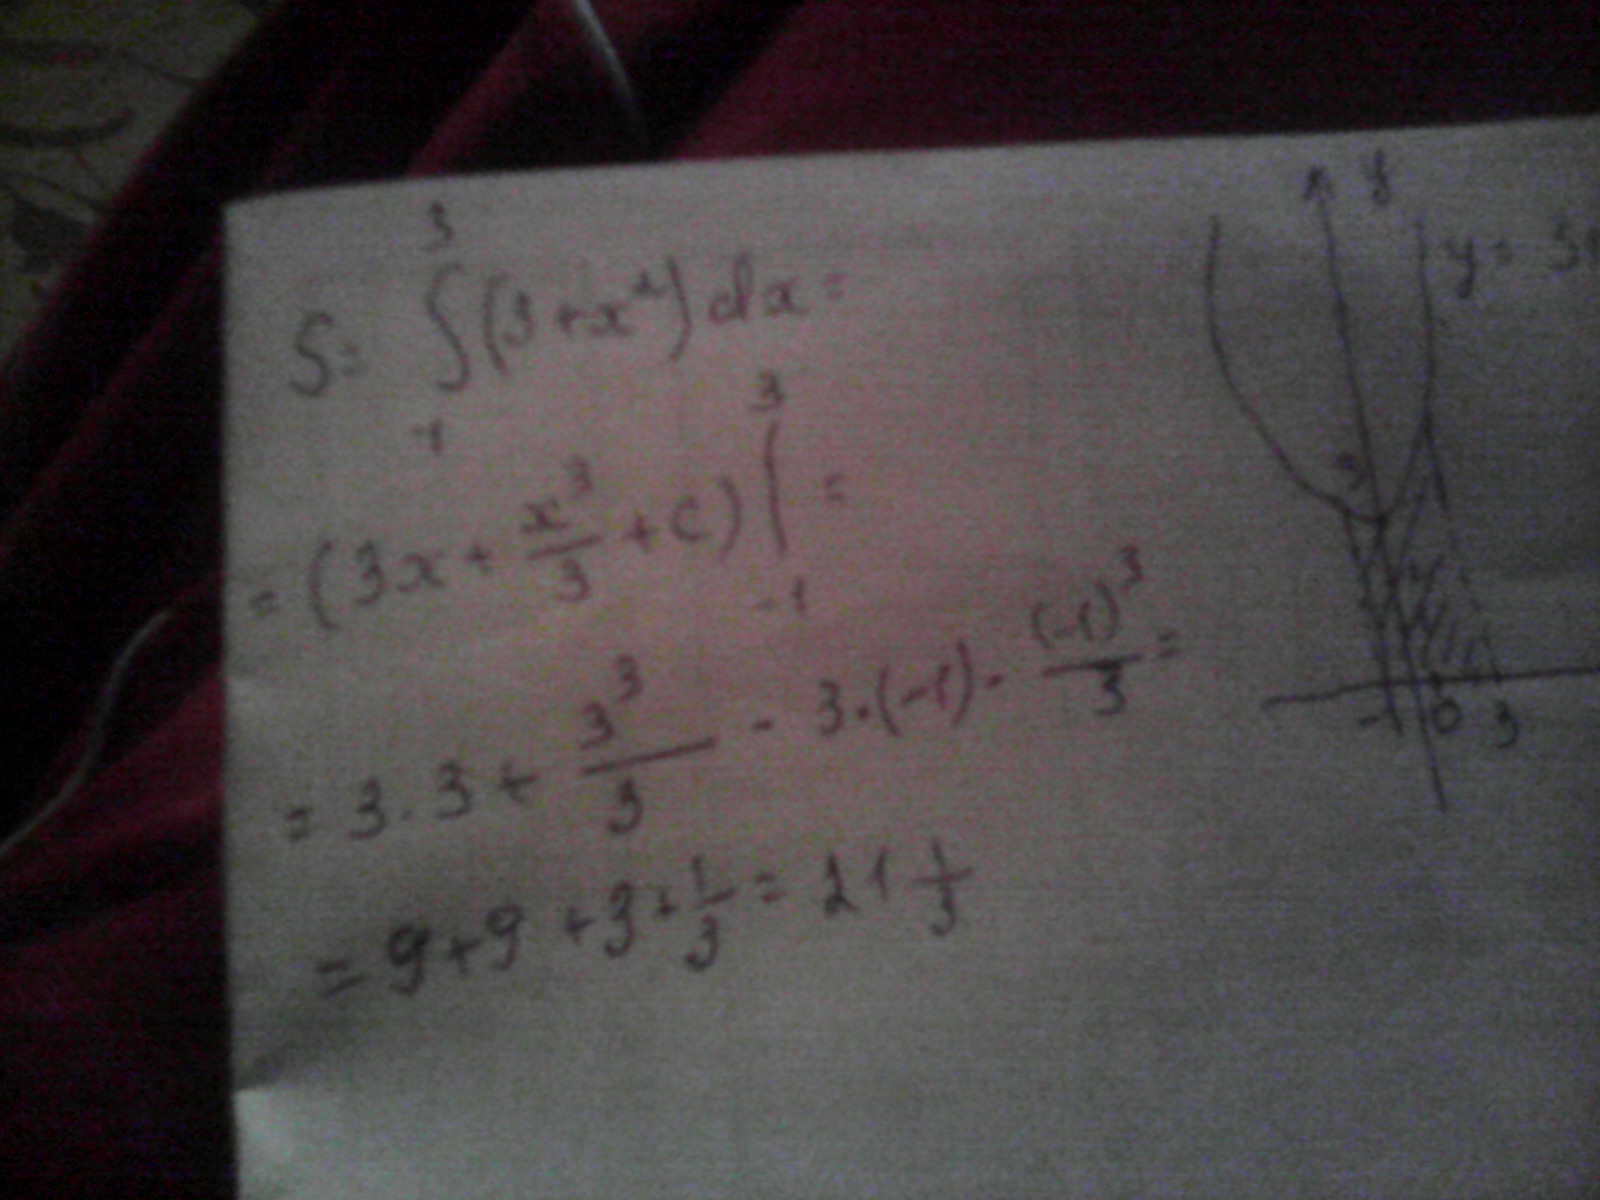 S = ∫₋₁³ (3 + x²) dx =
= (3x + x³/3 + C) |₋₁³ =
= 3 · 3 + 3³/3 - 3 · (-1) - (-1)³/3 =
= 9 + 9 + 3 + 1/3 = 21 1/3
y
y = 3
3
-1 0 3